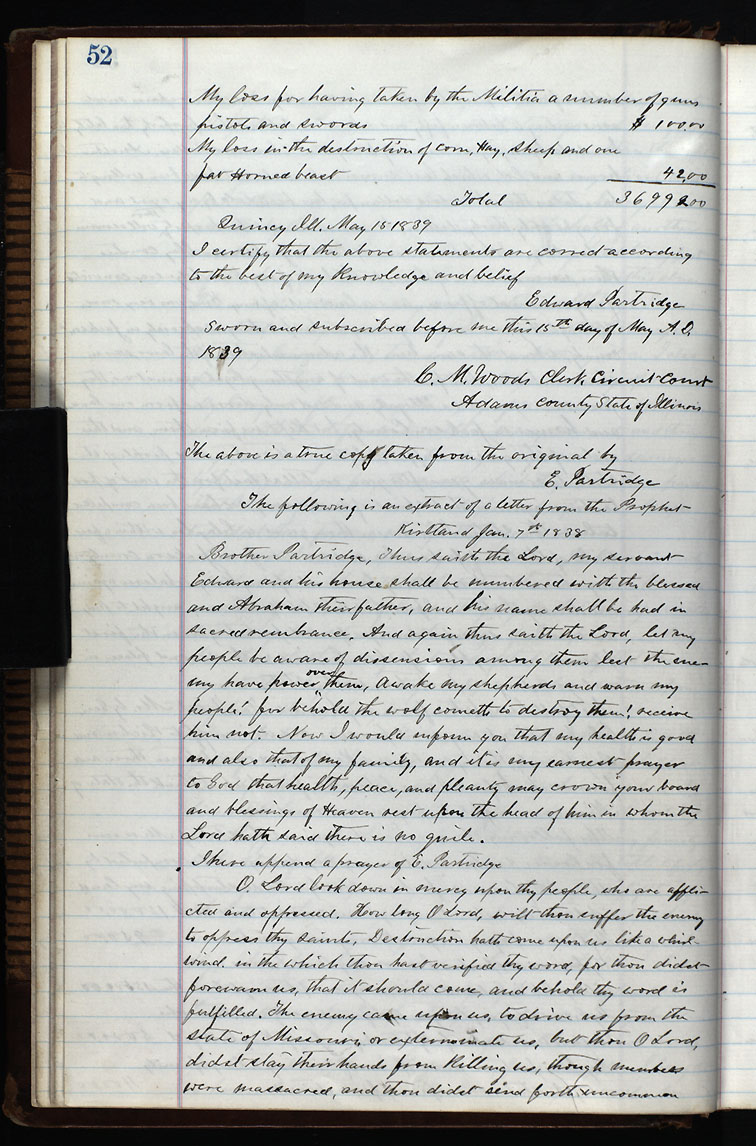 52
My loss for having taken by the Militia a number of guns
pistols and swords $ 100,00
My loss in the destruction of corn, Hay, sheep and one
fat Horned beast 42,00
Total 3699 00
Quincy Ill. May 15 1839
I certify that the above statements are correct according
to the best of my Knowledge and belief
Edward Partridge
Sworn and subscribed before me this 15th day of May A.D.
1839
C. M. Woods Clerk Circuit Court
Adams County State of Illinois
The above is a true copy taken from the original by
E. Partridge
The following is an extract of a letter from the Prophet
Kirtland Jan. 7th 1838
Brother Partridge, Thus saith the Lord, my servant
Edward and his house shall be numbered with the blessed
and Abraham their father, and his name shall be had in
sacred rembrance. And again thus saith the Lord, let my
people be aware of dissensions among them lest the ene-
my have power over them, Awake my shepherds and warn my
people! for behold the wolf cometh to destroy them! receive
him not. Now I would inform you that my health is good
and also that of my family, and it is my earnest prayer
to God that health, peace, and pleanty may crown your board
and blessings of Heaven rest upon the head of him in whom the
Lord hath said there is no guile.
I here append a prayer of E. Partridge
O. Lord look down in mercy upon thy people, who are affli-
cted and oppressed. How long O Lord, wilt thou suffer the enemy
to oppress thy saints. Destruction hath come upon us like a whirl-
wind in the which thou hast verified thy word, for thou didst
forewarn us, that it should come, and behold thy word is
fulfilled. The enemy came upon us, to drive us from the
state of Missouri, or exterminate us, but thou O Lord,
didst stay their hands from killing us, though numbers
were massacred, and thou didst send forth uncommon